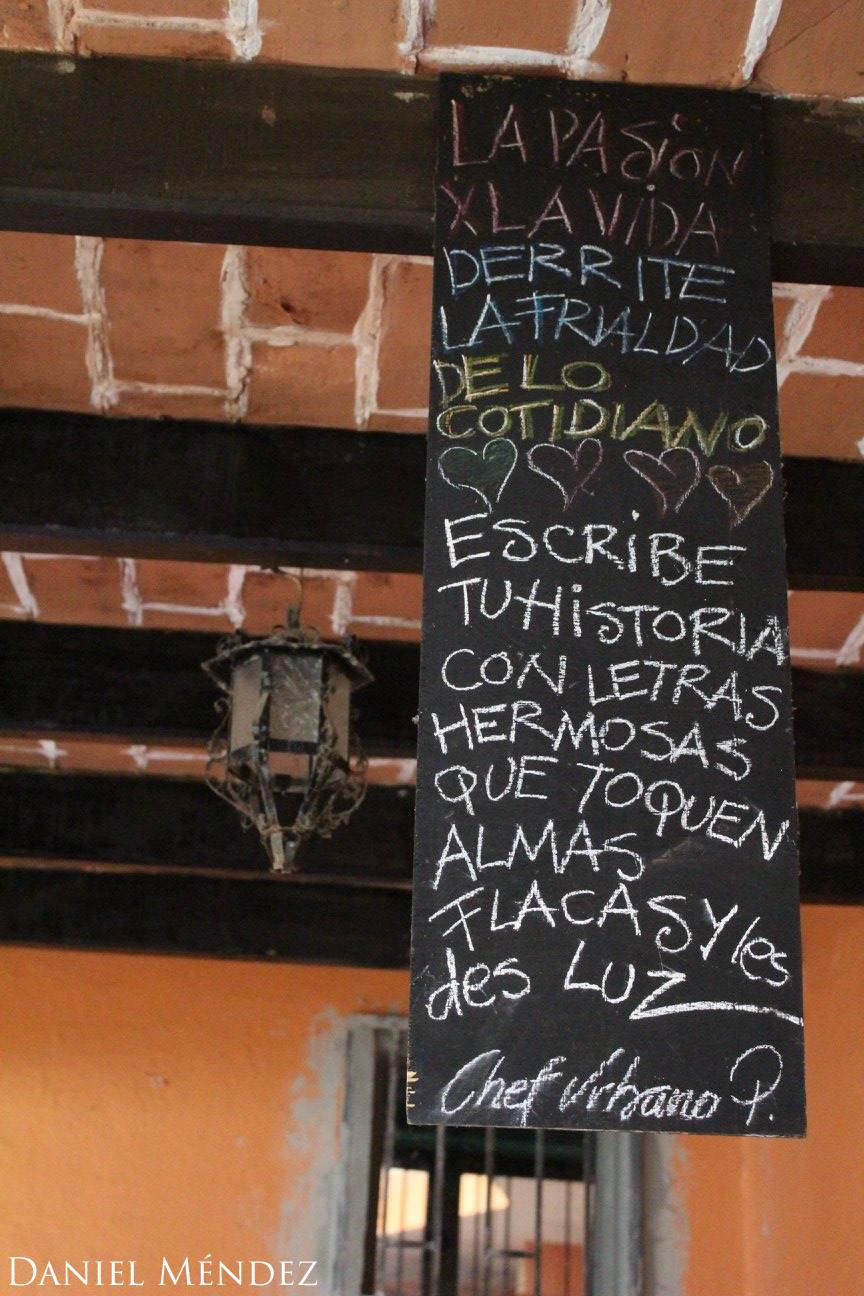 LA PASiON
X LA ViDA
DERRITE
LA FRIALDAD
DE LO
COTIDIANO
ESCRiBE
TU HiSTORIA
CON LETRAS
HERMOSAS
QUE TOQUEN
ALMAS
FLACAS Y les
des LUZ
Chef Urbano P.
DANIEL MÉNDEZ